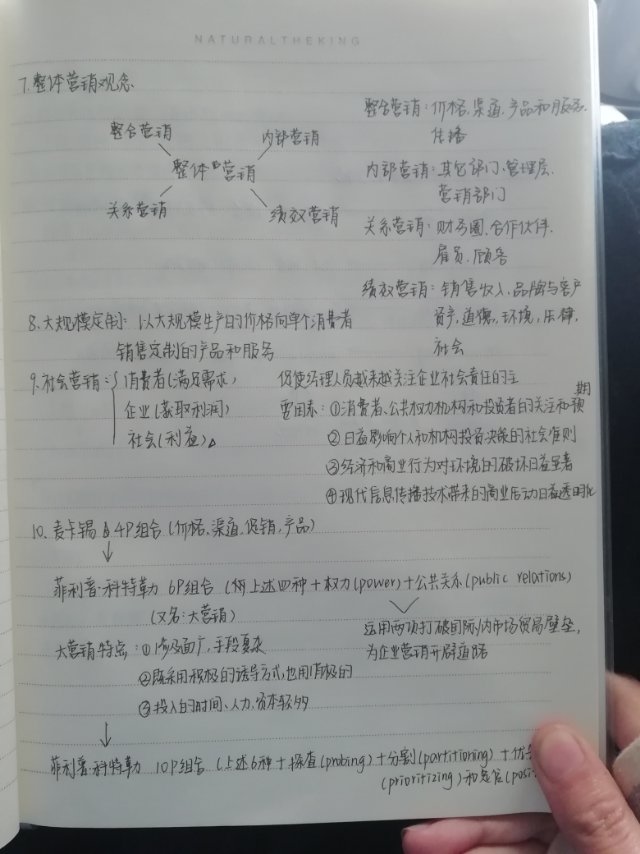 NATURALTHEKING
7.整体营销观念
整合营销
内部营销
整体的营销
关系营销
绩效营销
整合营销:价格、渠道、产品和服务、
传播
内部营销:其它部门、管理层、
营销部门
关系营销:财务圈、合作伙伴、
雇员、顾客
绩效营销:销售收入、品牌与客户
资产、道德、环境、法律、
社会
8.大规模定制:以大规模生产的价格向单个消费者
销售定制的产品和服务
9.社会营销:消费者(满足需求)
企业(获取利润)
社会(利益)
促使经理人员越来越关注企业社会责任的主
要因素:①消费者、公共权力机构和投资者的关注和预期
②日益影响个人和机构投资决策的社会准则
③经济和商业行为对环境的破坏日益显著
④现代信息传播技术带来的商业活动日益透明化
10.麦卡锡 4P组合(价格、渠道、促销、产品)
菲利普·科特勒 6P组合(上述四种+权力(power)+公共关系(public relations)
(又名:大营销)
运用两项打破国际/内市场贸易壁垒,
为企业营销开辟道路
大营销特点:①涉及面广,手段复杂
②既采用积极的诱导方式,也用消极的
③投入的时间、人力、资本较多
菲利普·科特勒 10P组合(上述6种+探查(probing)+分割(partitioning)+优
(prioritizing)和定位(posi